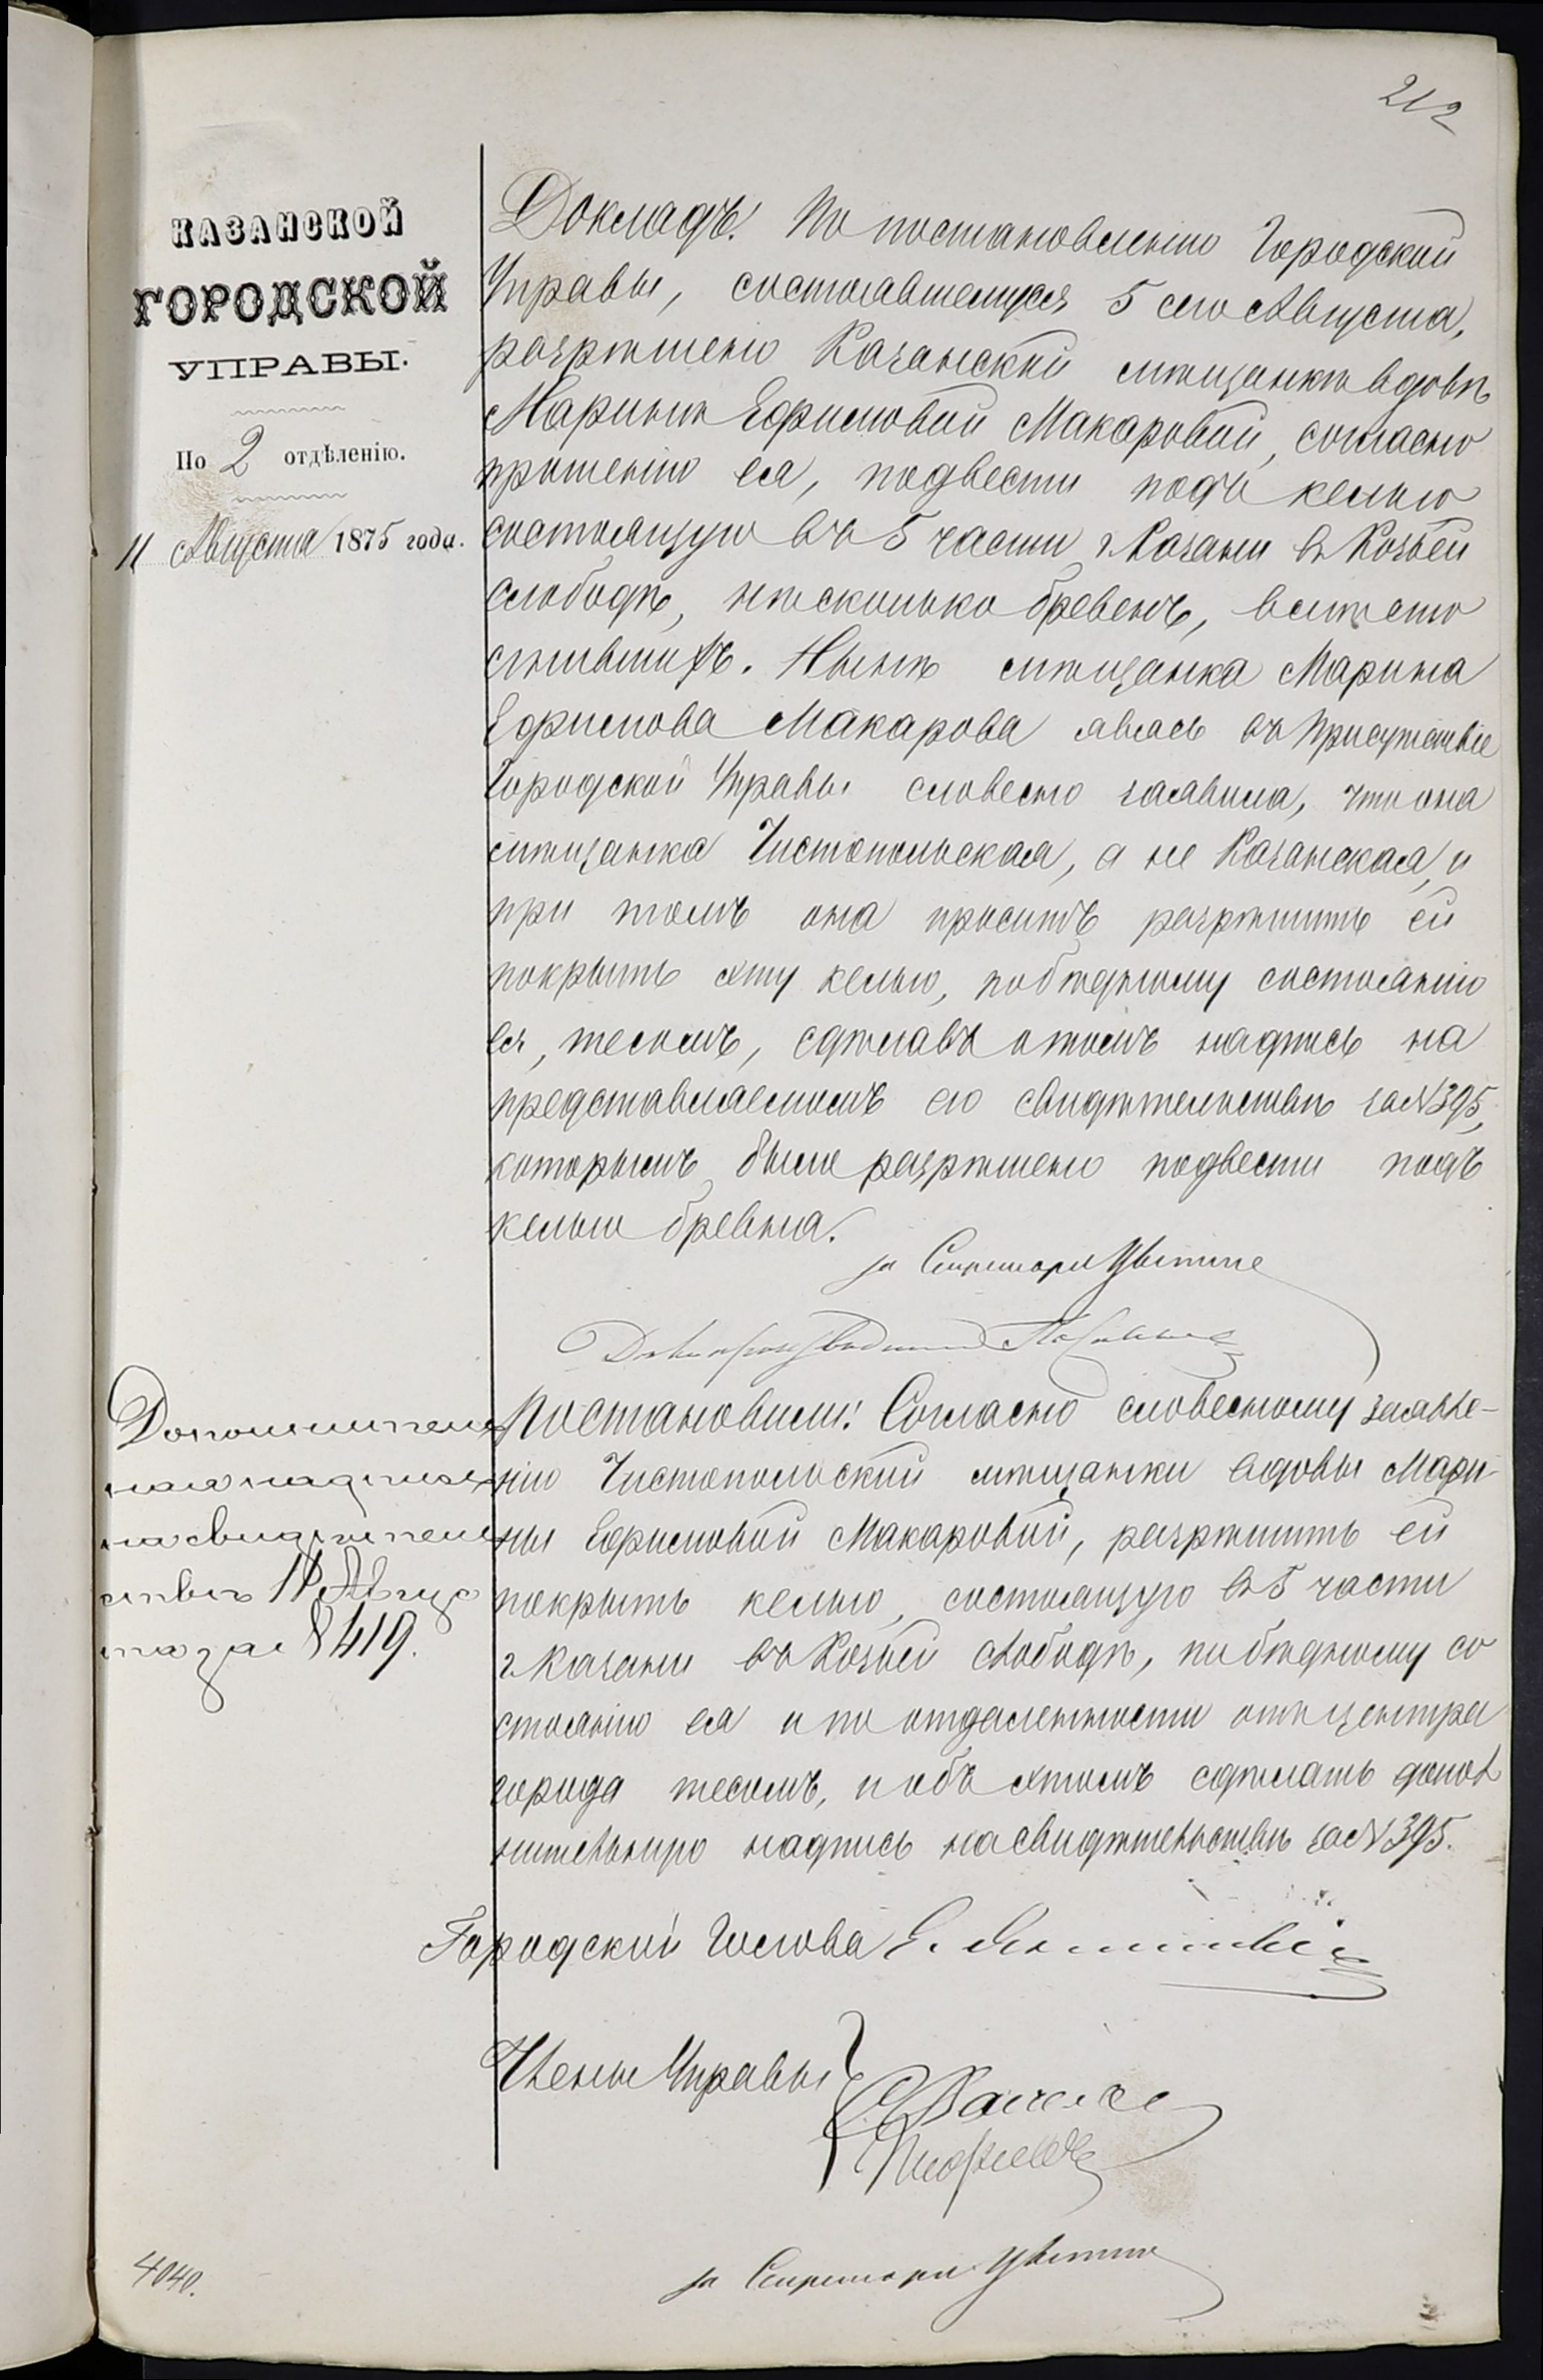 212
КАЗАНСКОЙ
ГОРОДСКОЙ
УПРАВЫ.
По 2 отдѣленію.
11 Августа 1875 года.
Докладъ. По постановленію Городской
Управы, состоявшемуся 5 сего Августа,
разрѣшено Казанской мѣщанкѣ вдовѣ
Маринѣ Ефимовой Макаровой, согласно
прошенію ея, подвести подъ келью
состоящую въ 5 части г. Казани въ Козьей
слободѣ, нѣсколько бревенъ, вмѣсто
сгнившихъ. Нынѣ мѣщанка Марина
Ефимова Макарова явясь въ Присутствіе
Городской Управы словесно заявила, что она
мѣщанка Чистопольская, а не Казанская, и
при томъ она проситъ разрѣшить ей
покрыть эту келью, по бѣдному состоянію
ея, тесомъ, сдѣлавъ о томъ надпись на
представляемомъ ею свидѣтельствѣ за №395,
которымъ было разрѣшено подвести подъ
келью бревна.
за Секретаря
Дѣлопроизводитель
Постановили: Согласно словесному заявле-
нію Чистопольской мѣщанки вдовы Мари-
ны Ефимовой Макаровой, разрѣшить ей
покрыть келью, состоящую въ 5 части
г. Казани въ Козьей слободѣ, по бѣдному со
стоянію ея и по отдаленности отъ центра
города тесомъ, и объ этомъ сдѣлать допол
нительную надпись на свидѣтельствѣ за №395.
Дополнитель
ная надпись
на свидѣтель
ствѣ 11 Авгус
та за № 419.
Городской Голова
Члены Управы
за Секретаря
4040.